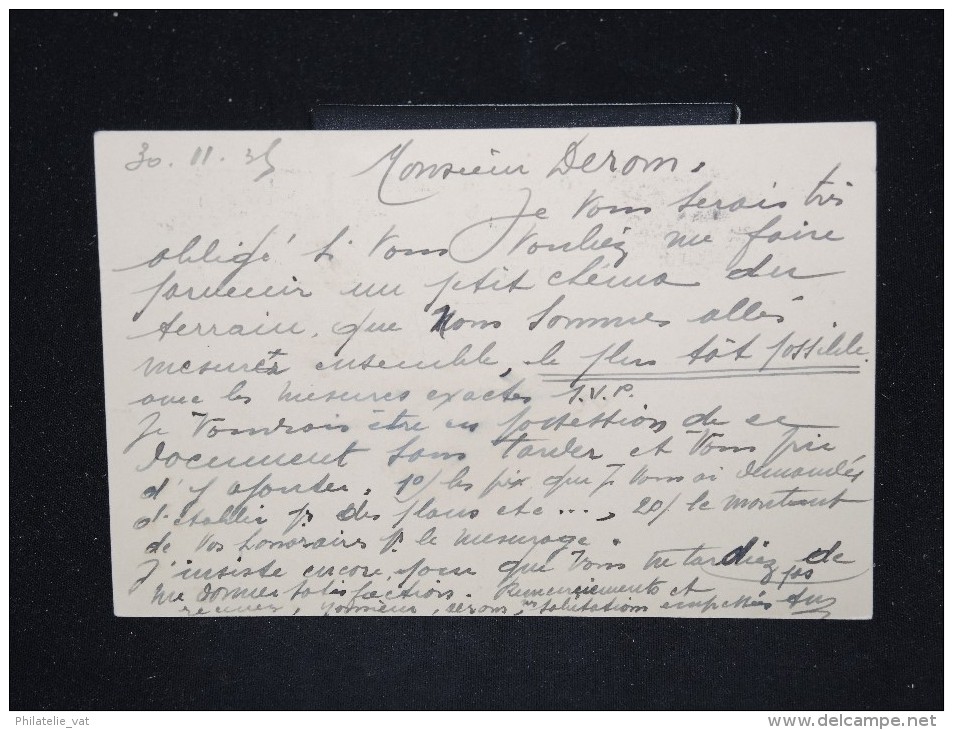 30. 11. 35
Monsieur Derom,
Je Vous serais très
obligé si Vous Vouliez me faire
parvenir un petit chéma du
terrain, que Nous sommes allés
mesurer ensemble, le plus tôt possible.
avec les mesures exactes S.V.P.
Je Voudrais être en possession de ce
document sans tarder et Vous prie
d'y ajouter, 1°/ les prix que je Vous ai demandés
d'établir pr des plans etc..., 2°/ le montant
de Vos honoraires pr le mesurage.
J'insiste encore, pour que Vous ne tardiez pas de
me donner satisfaction. Remerciements et
recevez, Monsieur, Derom, salutations empressées
Philatelie_vat
www.delcampe.net